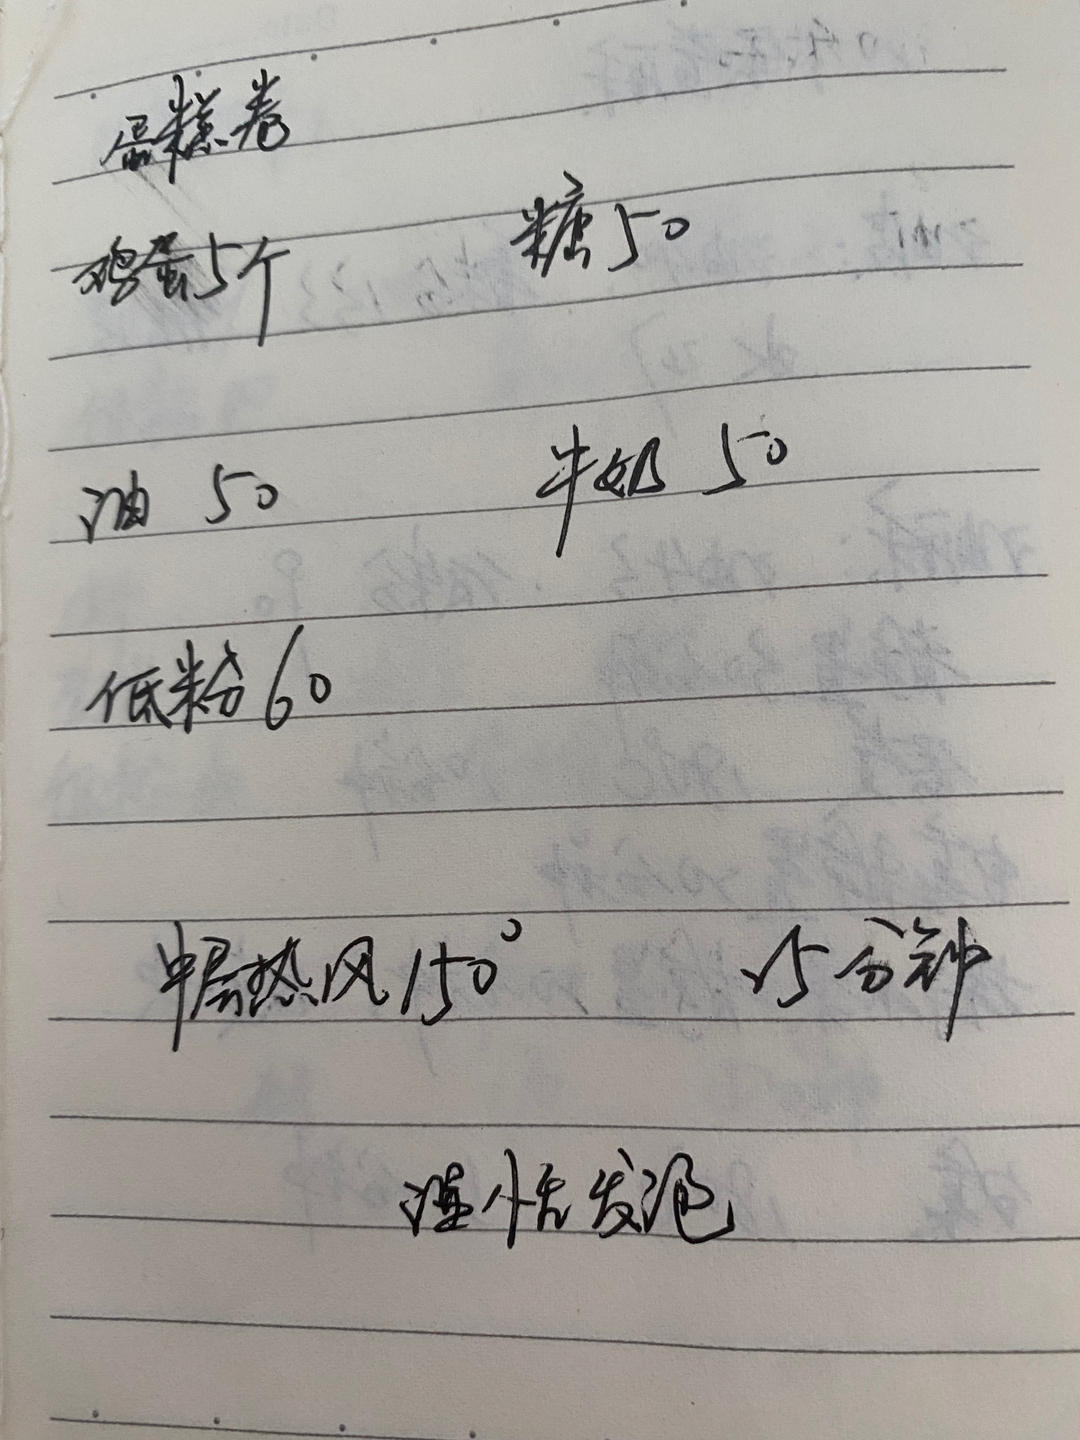 蛋糕卷
鸡蛋5个 糖50
油 50 牛奶 50
低粉60
中层热风150° 25分钟
湿性发泡